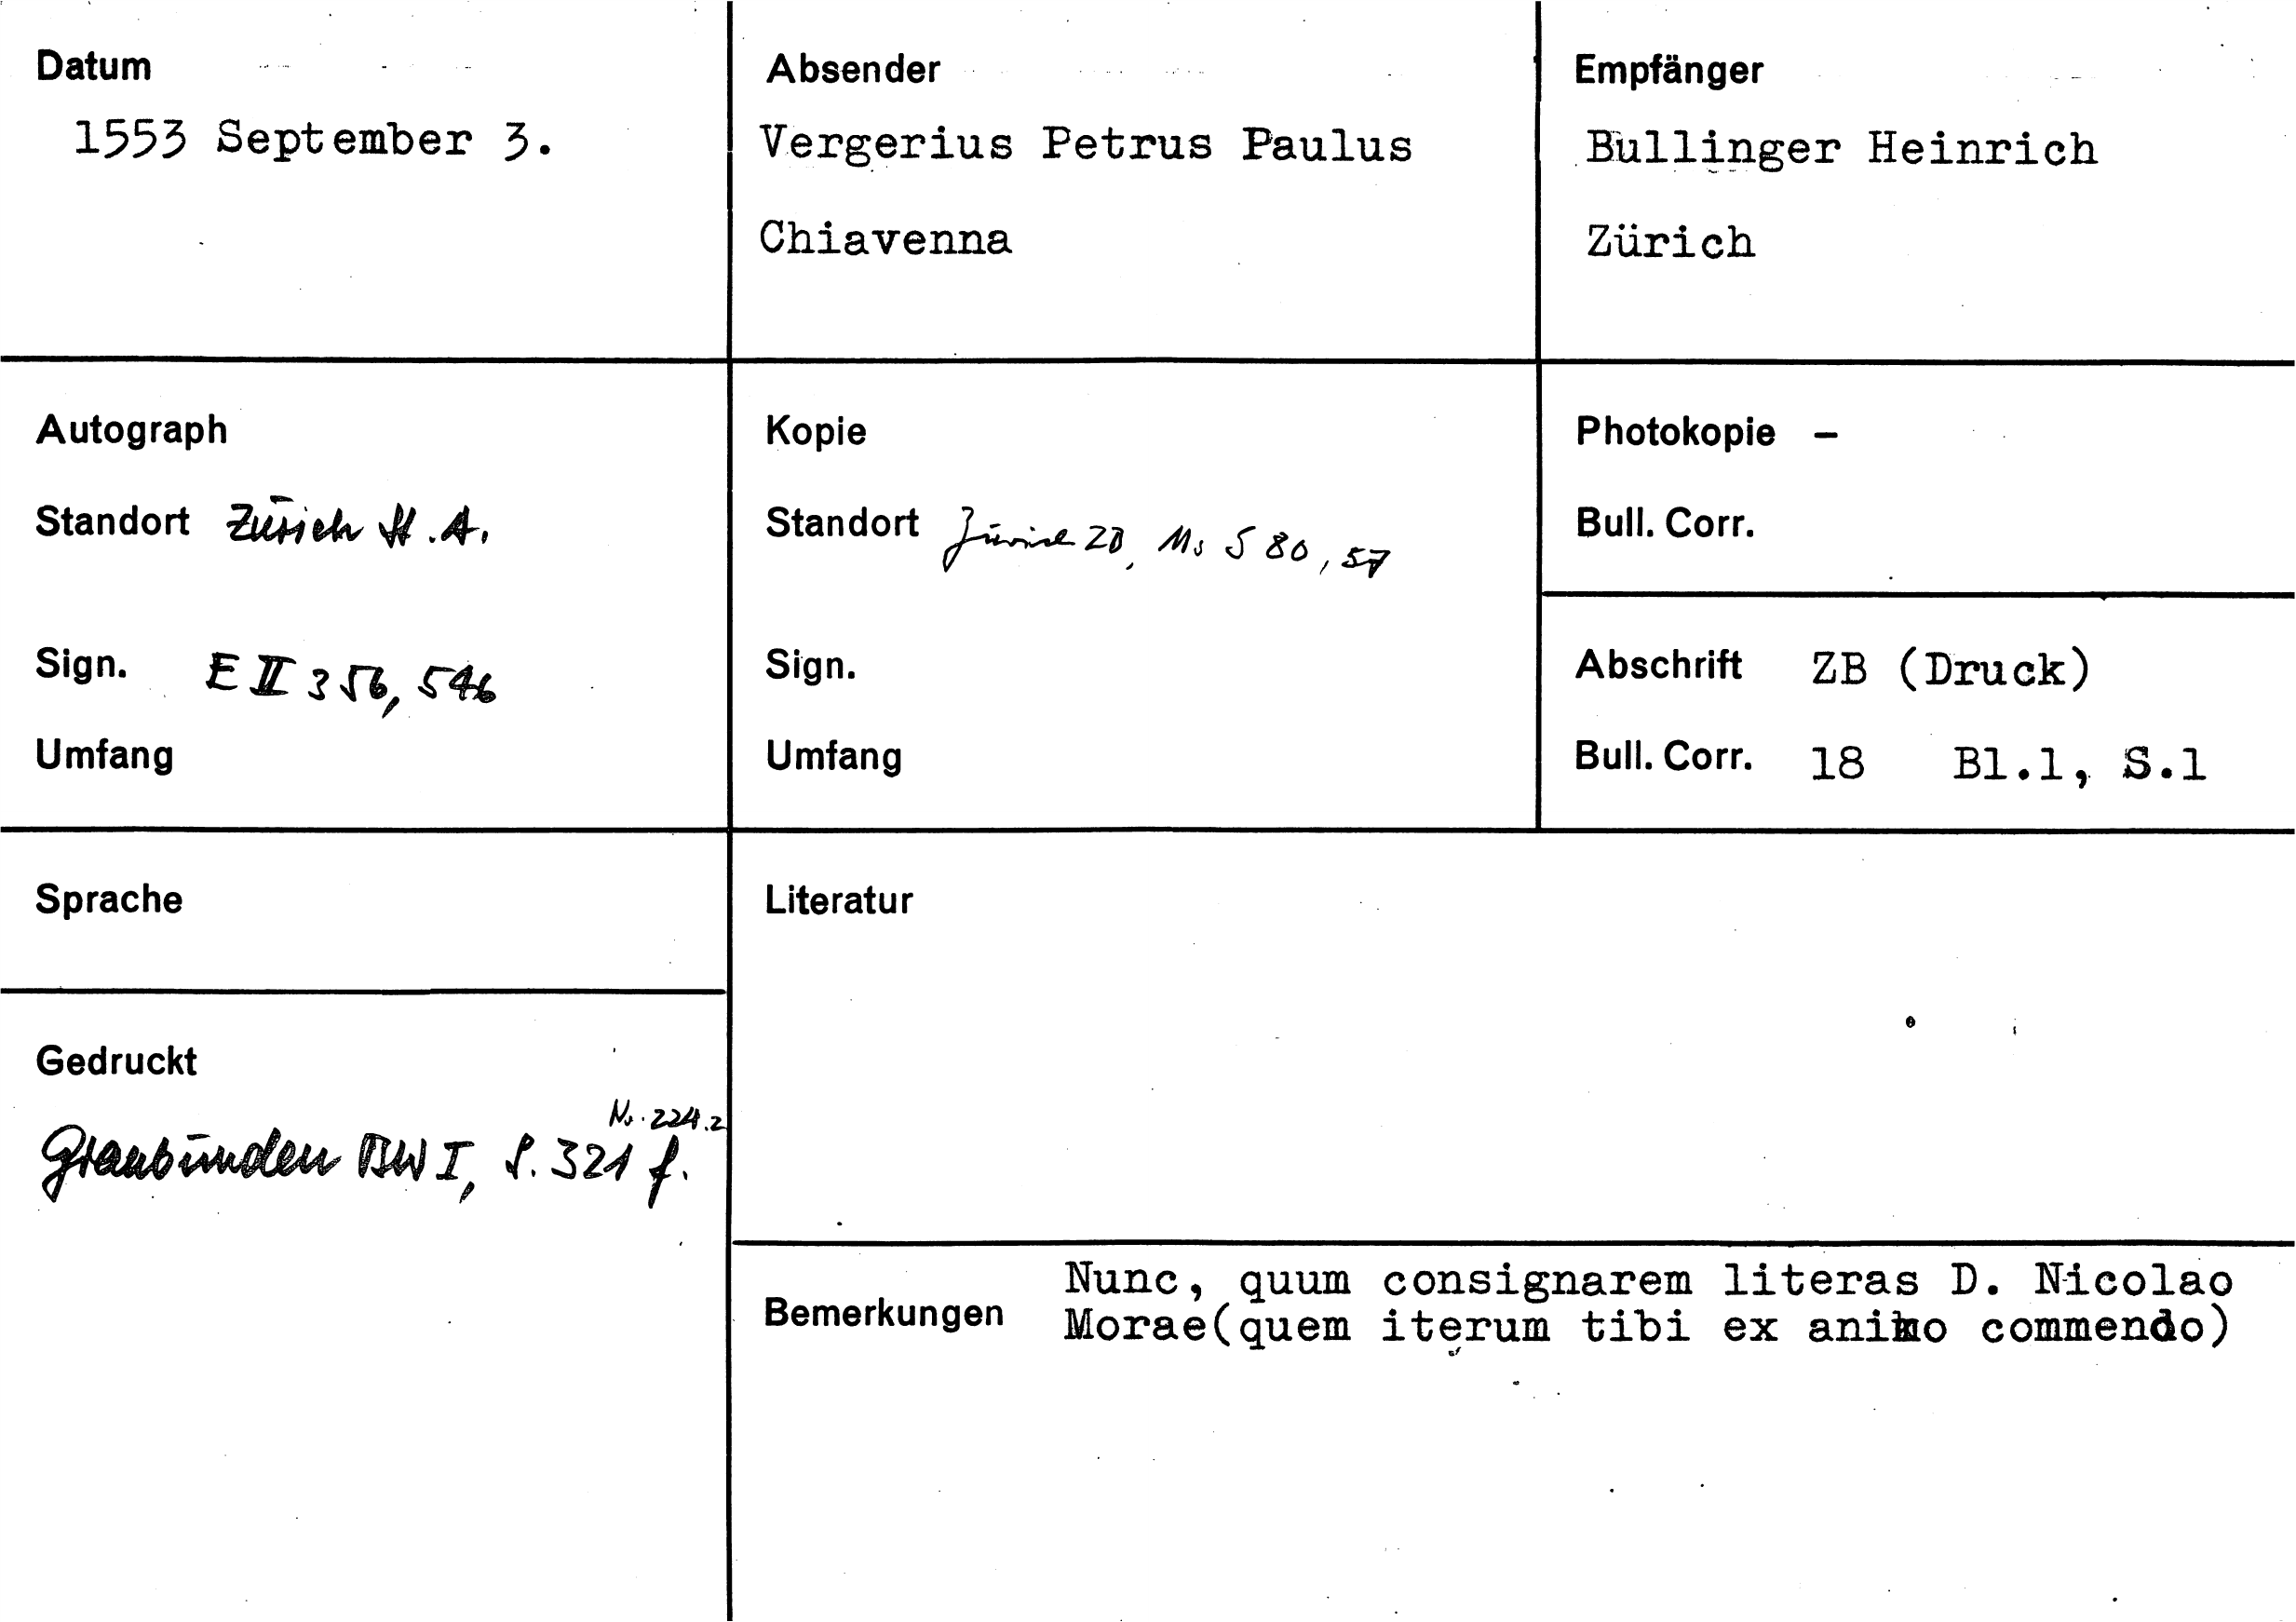 Datum
1553 September 3.
Absender
Vergerius Petrus Paulus
Chiavenna
Empfänger
Bullinger Heinrich
Zürich
Autograph
Standort Zürich St.A.
Sign. E II 356, 546
Umfang
Kopie
Standort Zürich ZB, Ms S 80, 57
Sign.
Umfang
Photokopie –
Bull. Corr.
Abschrift ZB (Druck)
Bull. Corr. 18 Bl.1, S.1
Sprache
Gedruckt
Nr. 224.2
Graubünden BW I, S. 321 f.
Literatur
Bemerkungen
Nunc, quum consignarem literas D. Nicolao
Morae(quem iterum tibi ex animo commendo)